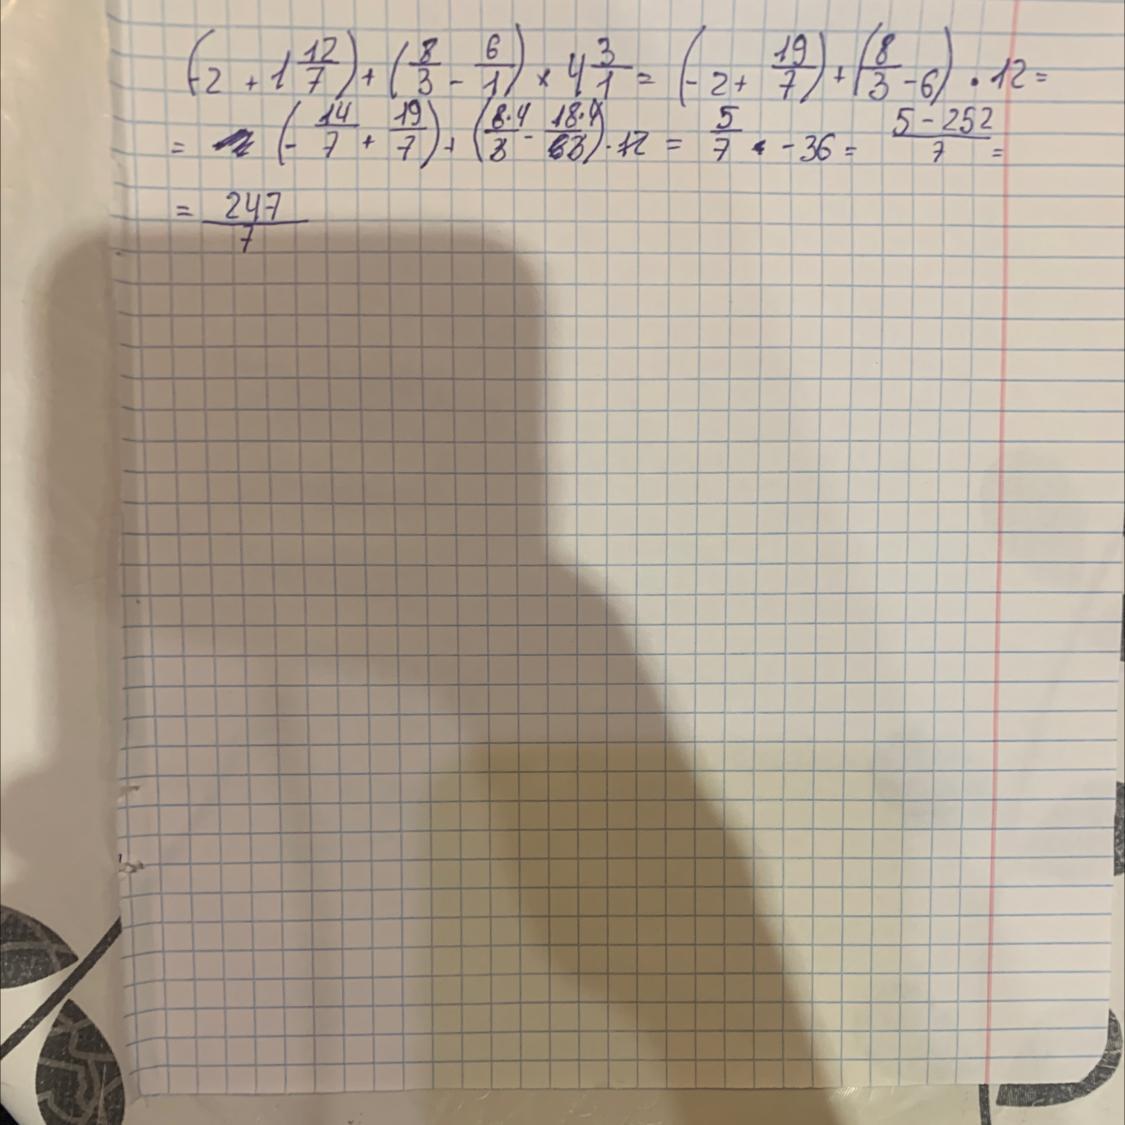 (-2 + 1 12/7) + (8/3 - 6/1) × 4 3/1 = (-2 + 19/7) + (8/3 - 6) · 12 =
= (-14/7 + 19/7) + (8·4/3 - 18·4/3) · 12 = 5/7 · -36 = 5 - 252/7 =
= 247/7